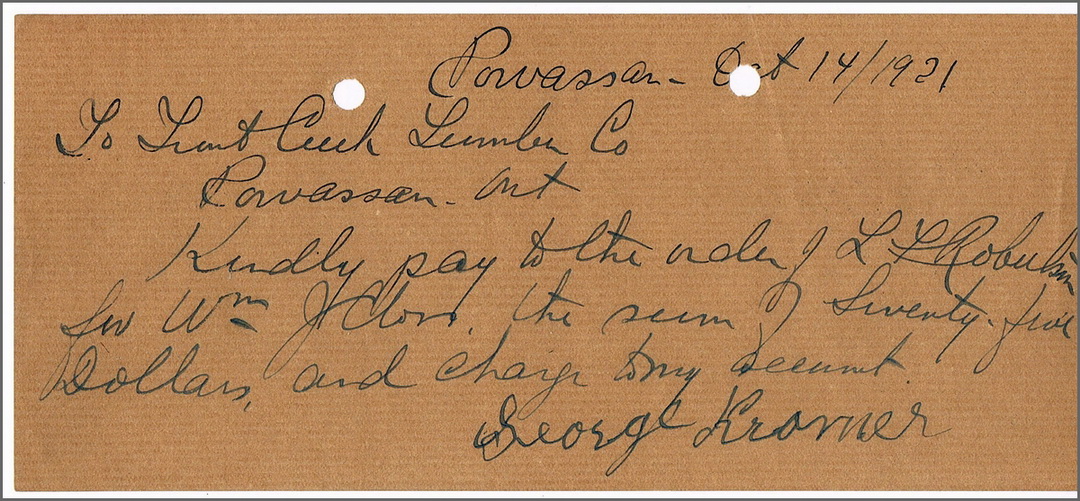 Powassan - Oct 14/1921
To Trout Creek Lumber Co
Powassan - Ont
Kindly pay to the order of L F Robertson
for Wm J Clors, the sum of Seventy-five
Dollars, and charge to my account.
George Kromer